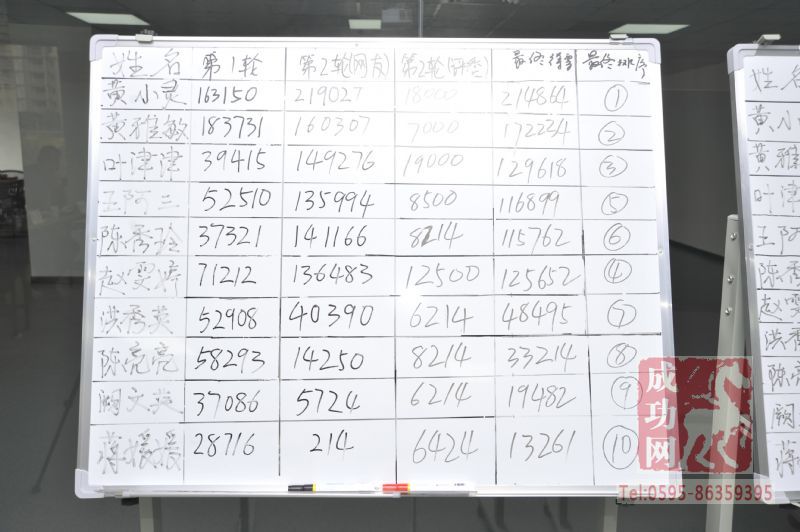 姓名 第1轮 第2轮(网友) 第2轮 最终得票 最终排序
黄小灵 163150 219027 18000 214864 ①
黄雅敏 183731 160307 7000 172234 ②
叶津津 39415 149276 19000 129618 ③
王阿三 52510 135994 8500 116899 ⑤
陈秀玲 37321 141166 8214 115762 ⑥
赵雯婷 71212 136483 12500 125652 ④
洪秀英 52908 40390 6214 48495 ⑦
陈亮亮 58293 14250 8214 33214 ⑧
阙文英 37086 5724 6214 19482 ⑨
蒋媛媛 28716 214 6424 13261 ⑩
姓名
黄小
黄雅
叶津
王阿
陈秀
赵雯
洪秀
陈亮
阙
蒋
成功网
Tel:0595-86359395